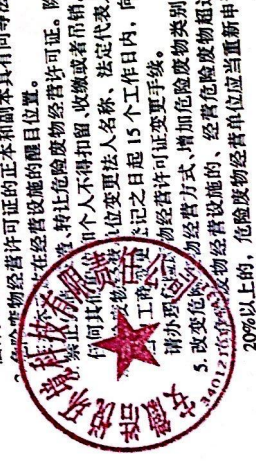 物经营许可证的正本和副本具有同等法
在经营设施的醒目位置。
禁止 转让危险废物经营许可证。除
任何其他 和个人不得扣留、收缴或者吊销
位变更法人名称、法定代表
工商 登记之日起 15 个工作日内,向
请办理 物经营许可证变更手续。
5. 改变危险 物经营方式、增加危险废物类别
物经营设施的、经营危险废物超过
20%以上的，危险废物经营单位应当重新申
安徽浩悦环境科技有限责任公司